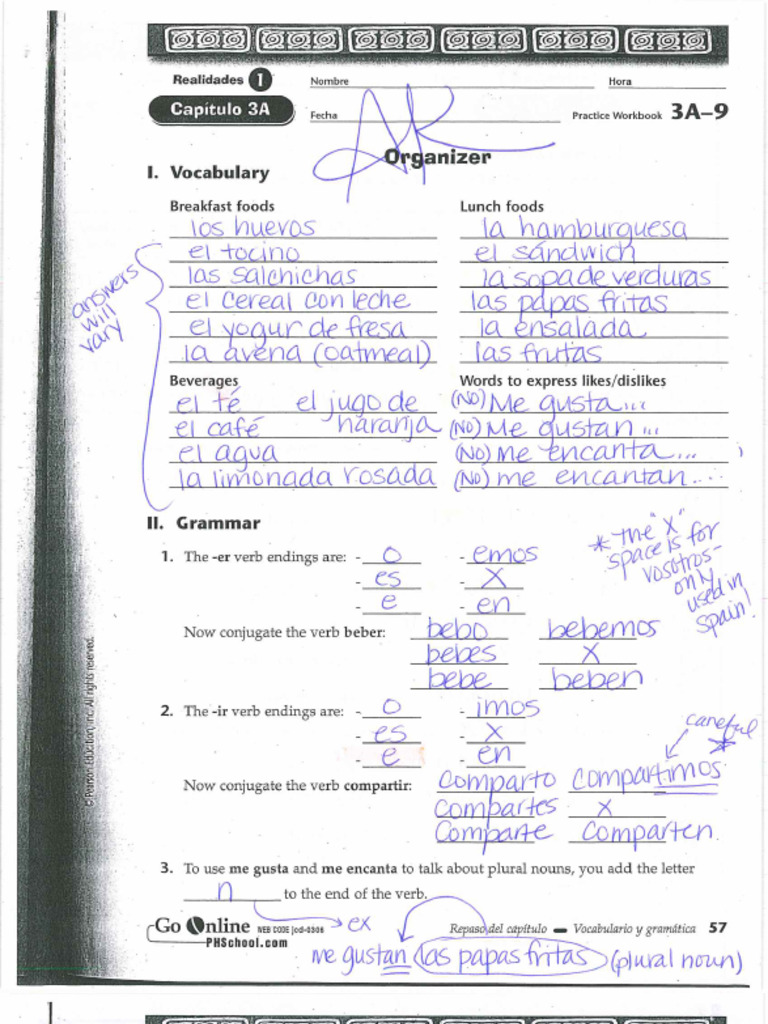 Realidades 1
Nombre
Hora
Capítulo 3A
Fecha
Practice Workbook 3A–9
AK
Organizer
I. Vocabulary
Breakfast foods
los huevos
el tocino
las salchichas
el cereal con leche
el yogur de fresa
la avena (oatmeal)
answers
will
vary
Lunch foods
la hamburguesa
el sándwich
la sopa de verduras
las papas fritas
la ensalada
las frutas
Beverages
el té el jugo de
el café naranja
el agua
la limonada rosada
Words to express likes/dislikes
(NO) Me gusta...
(NO) Me gustan...
(NO) me encanta...
(NO) me encantan...
II. Grammar
1. The -er verb endings are: - o - emos
- es - X
- e - en
* the "X"
space is for
vosotros-
only
used in
Spain!
Now conjugate the verb beber: bebo bebemos
bebes X
bebe beben
2. The -ir verb endings are: - o - imos
- es - X
- e - en
careful
*
Now conjugate the verb compartir: comparto compartimos
compartes X
comparte comparten
3. To use me gusta and me encanta to talk about plural nouns, you add the letter
n to the end of the verb.
© Pearson Education, Inc. All rights reserved.
Go Online WEB CODE jcd-0306
PHSchool.com
ex
Repaso del capítulo — Vocabulario y gramática 57
me gustan las papas fritas (plural noun)